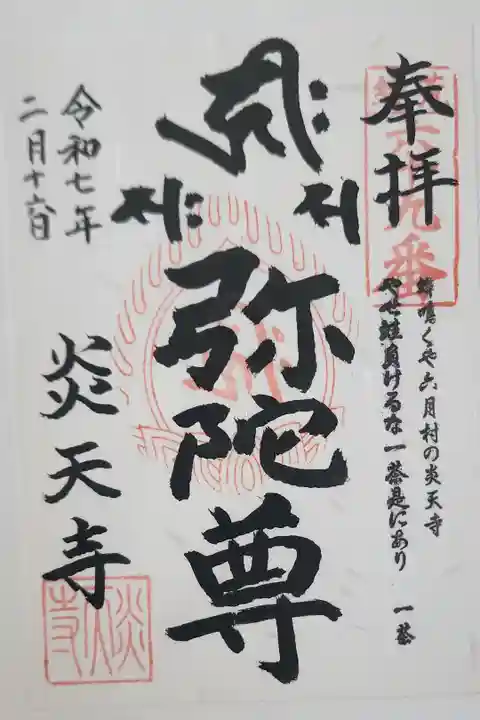 奉拝
蝉鳴くや六月村の炎天寺
やせ蛙負けるな一茶是にあり 一茶
弥陀尊
令和七年
二月十六日
炎天寺
炎天寺